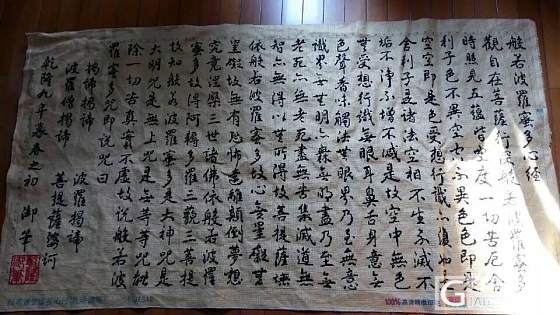 般若波羅蜜多心經
觀自在菩薩行深般若波羅蜜多
時照見五蘊皆空度一切苦厄舍
利子色不異空空不異色色即是
空空即是色受想行識亦復如是
舍利子是諸法空相不生不滅不
垢不淨不增不減是故空中無色
無受想行識無眼耳鼻舌身意無
色聲香味觸法無眼界乃至無意
識界無無明亦無無明盡乃至無
老死亦無老死盡無苦集滅道無
智亦無得以無所得故菩提薩埵
依般若波羅蜜多故心無罣礙無
罣礙故無有恐怖遠離顛倒夢想
究竟涅槃三世諸佛依般若波羅
蜜多故得阿耨多羅三藐三菩提
故知般若波羅蜜多是大神咒是
大明咒是無上咒是無等等咒能
除一切苦真實不虛故說般若波
羅蜜多咒即說咒曰
揭諦揭諦 波羅揭諦
波羅僧揭諦 菩提薩婆訶
乾隆九年暮春之初 御筆
100%
G